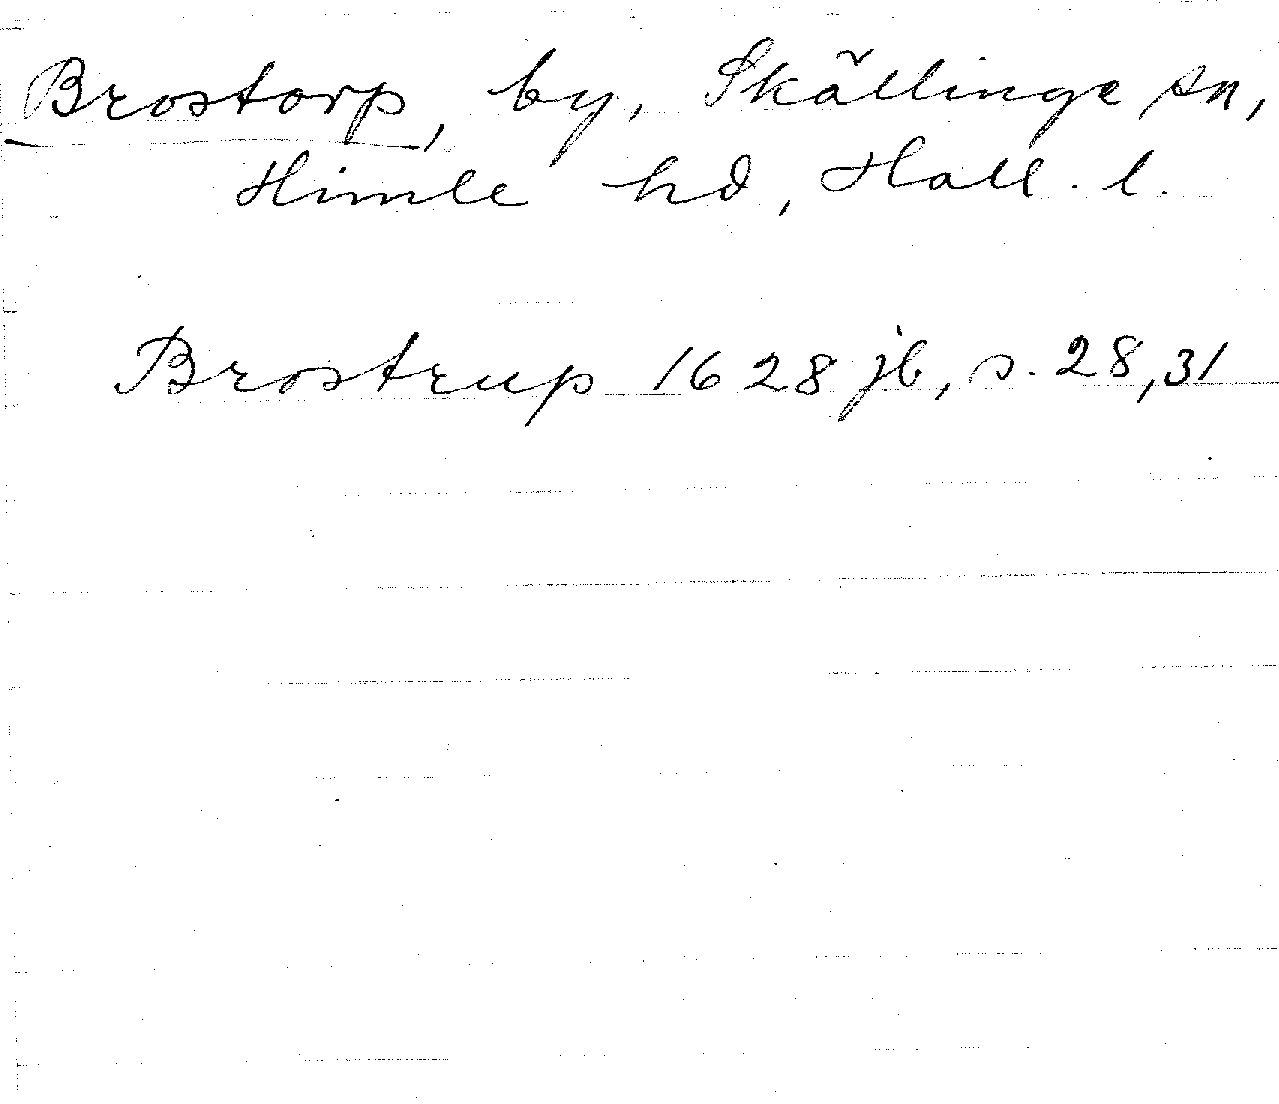 Brostorp, by, Skällinge sn,
Himle hd, Hall. l.
Brostrup 1628 jb, s. 28, 31